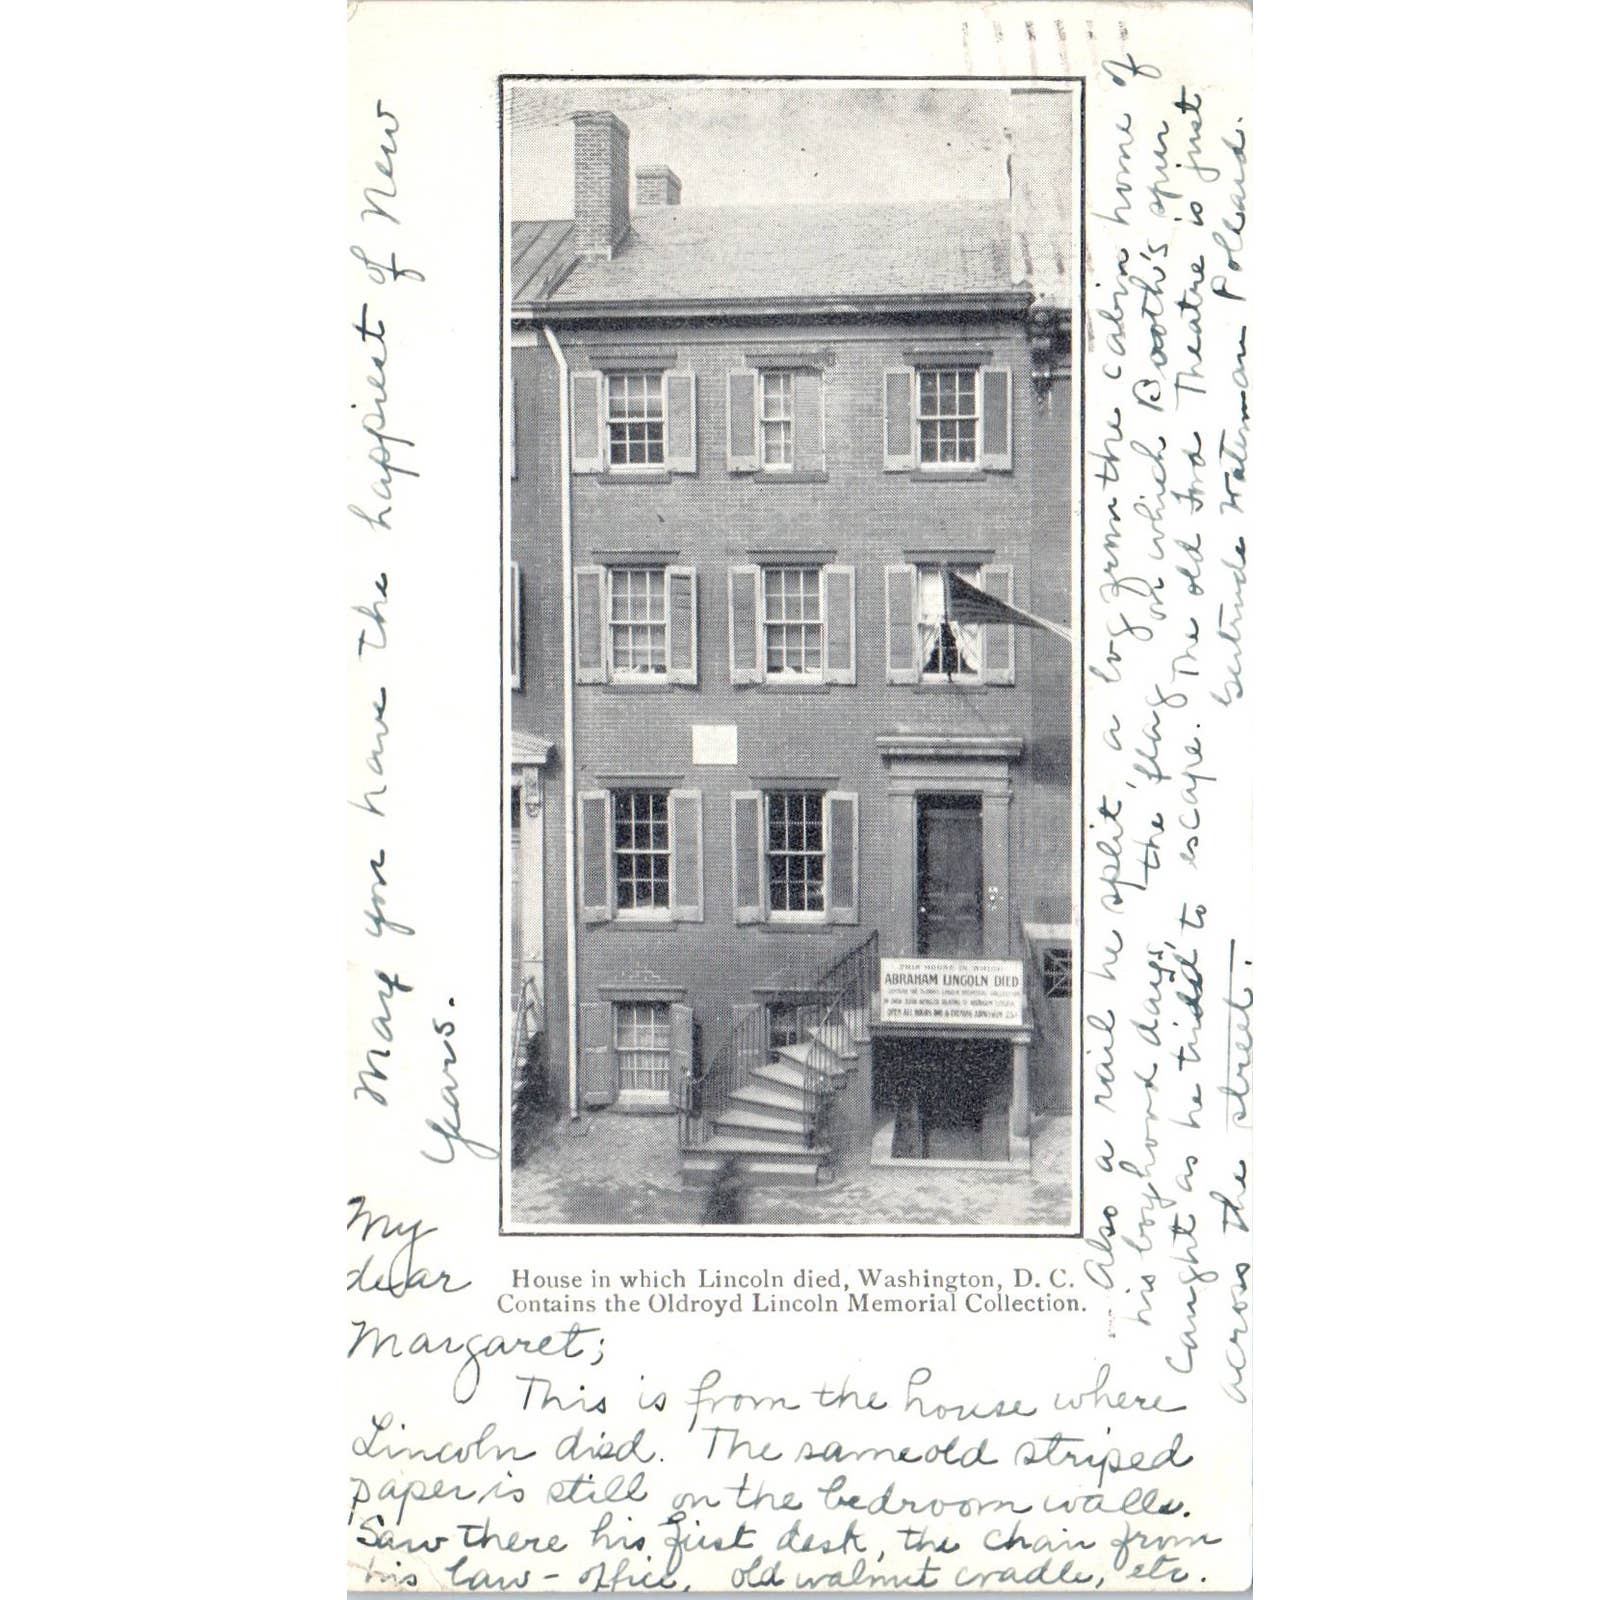 THIS HOUSE IN WHICH
ABRAHAM LINCOLN DIED
CONTAINS THE OLDROYD LINCOLN MEMORIAL COLLECTION
OF OVER 3000 ARTICLES RELATING TO ABRAHAM LINCOLN
OPEN ALL HOURS DAY & EVENING ADMISSION 25¢
House in which Lincoln died, Washington, D. C.
Contains the Oldroyd Lincoln Memorial Collection.
My
dear
Margaret;
This is from the house where
Lincoln died. The same old striped
paper is still on the bedroom walls.
Saw there his first desk, the chair from
his law-office, old walnut cradle, etc.
Also a rail he split, a log from the cabin home of
his boyhood days, the flag on which Booth's spur
caught as he tried to escape. The old Ford Theatre is just
across the street. Gertrude Waterman Pollard.
May you have the happiest of New
Years.